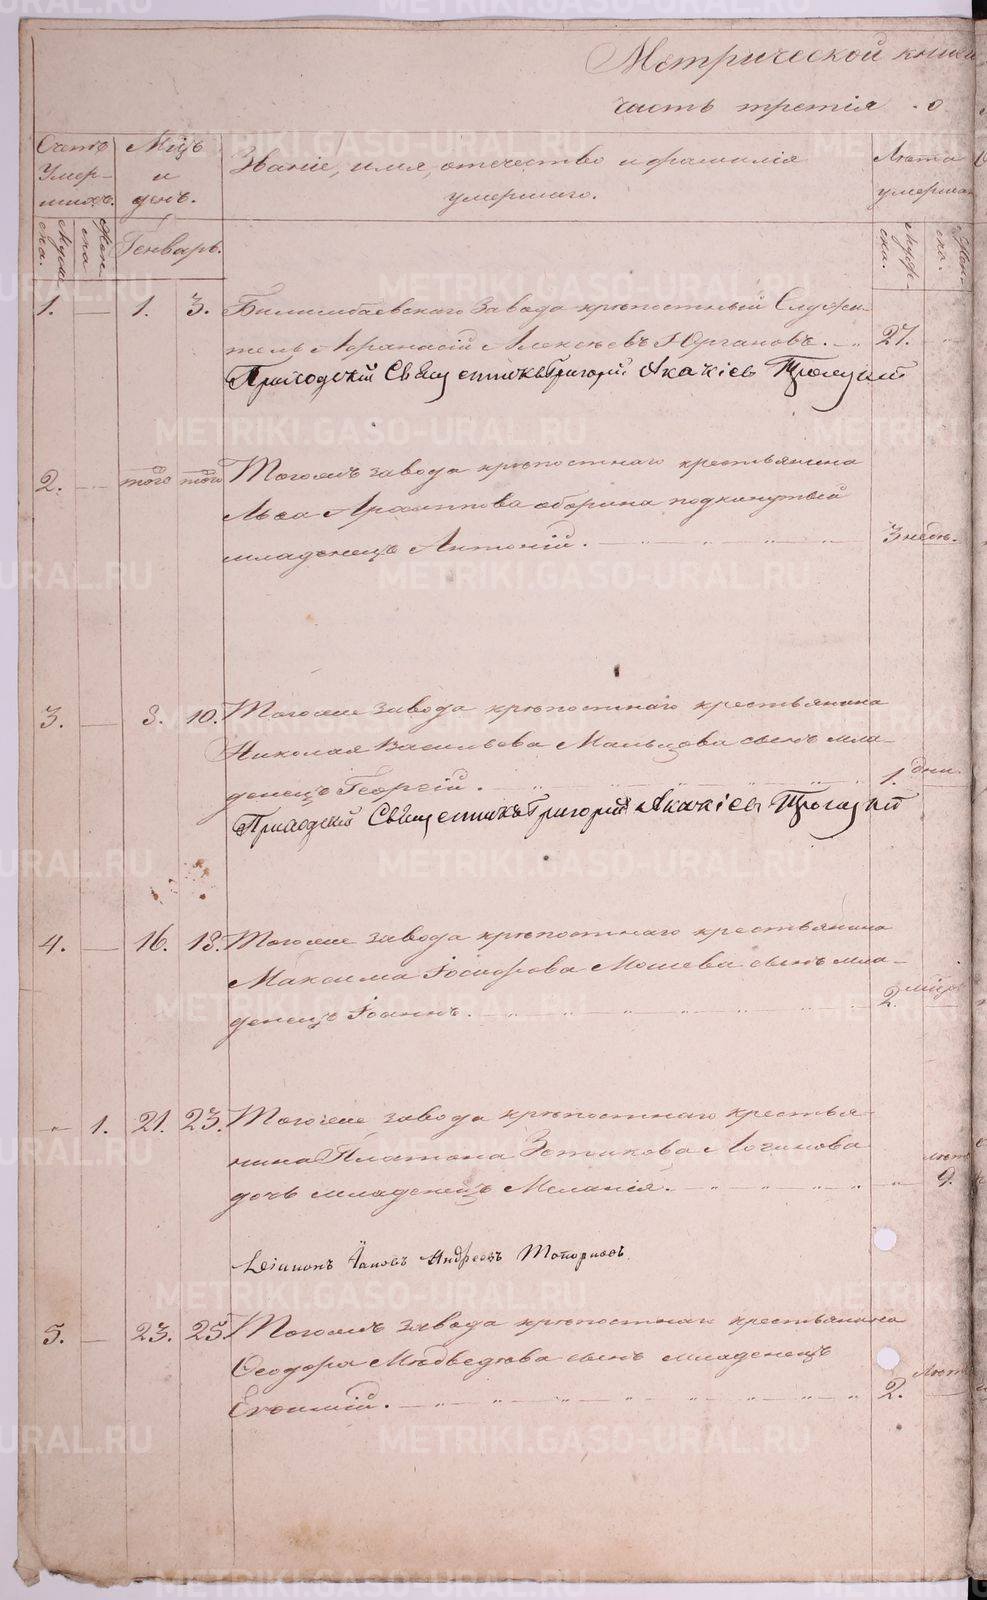 Метрической книги
часть третія о
Счетъ Умер- шихъ.
Мцъ и день.
Званіе, имя, отечество и фамилія
умершаго.
Лѣта умершаго
Муж- ска.
Жен- ска
Генварь.
Муж- ска.
Жен- ска.
1. — 1. 3. Билимбаевскаго Завода крѣпостный Служи-
тель Афанасій Алексѣевъ Юргановъ. 27.
Приходскій Священникъ Григорій Акакіевъ
2. — того того Тогожъ завода крѣпостнаго крестьянина
подкинутый
младенецъ Антоній. 3 недѣ.
3. — 8. 10. Тогоже завода крѣпостнаго крестьянина
Николая Васильева Мальцова сынъ мла-
денецъ Георгій. 1. дни.
Приходскій Священникъ Григорій Акакіевъ
4. — 16. 18. Тогоже завода крѣпостнаго крестьянина
Максима Мошева сынъ мла-
денецъ Іоаннъ. 2.
1. 21. 23. Тогоже завода крѣпостнаго крестья-
нина Платона Зотикова Логинова
дочь младенецъ Меланія. лѣт 9.
Андреевъ Топорковъ.
5. — 23. 25. Тогожъ завода крѣпостнаго крестьянина
Ѳеодора Медведева сынъ младенецъ
Евѳимій. 2. лѣт
METRIKI.GASO-URAL.RU